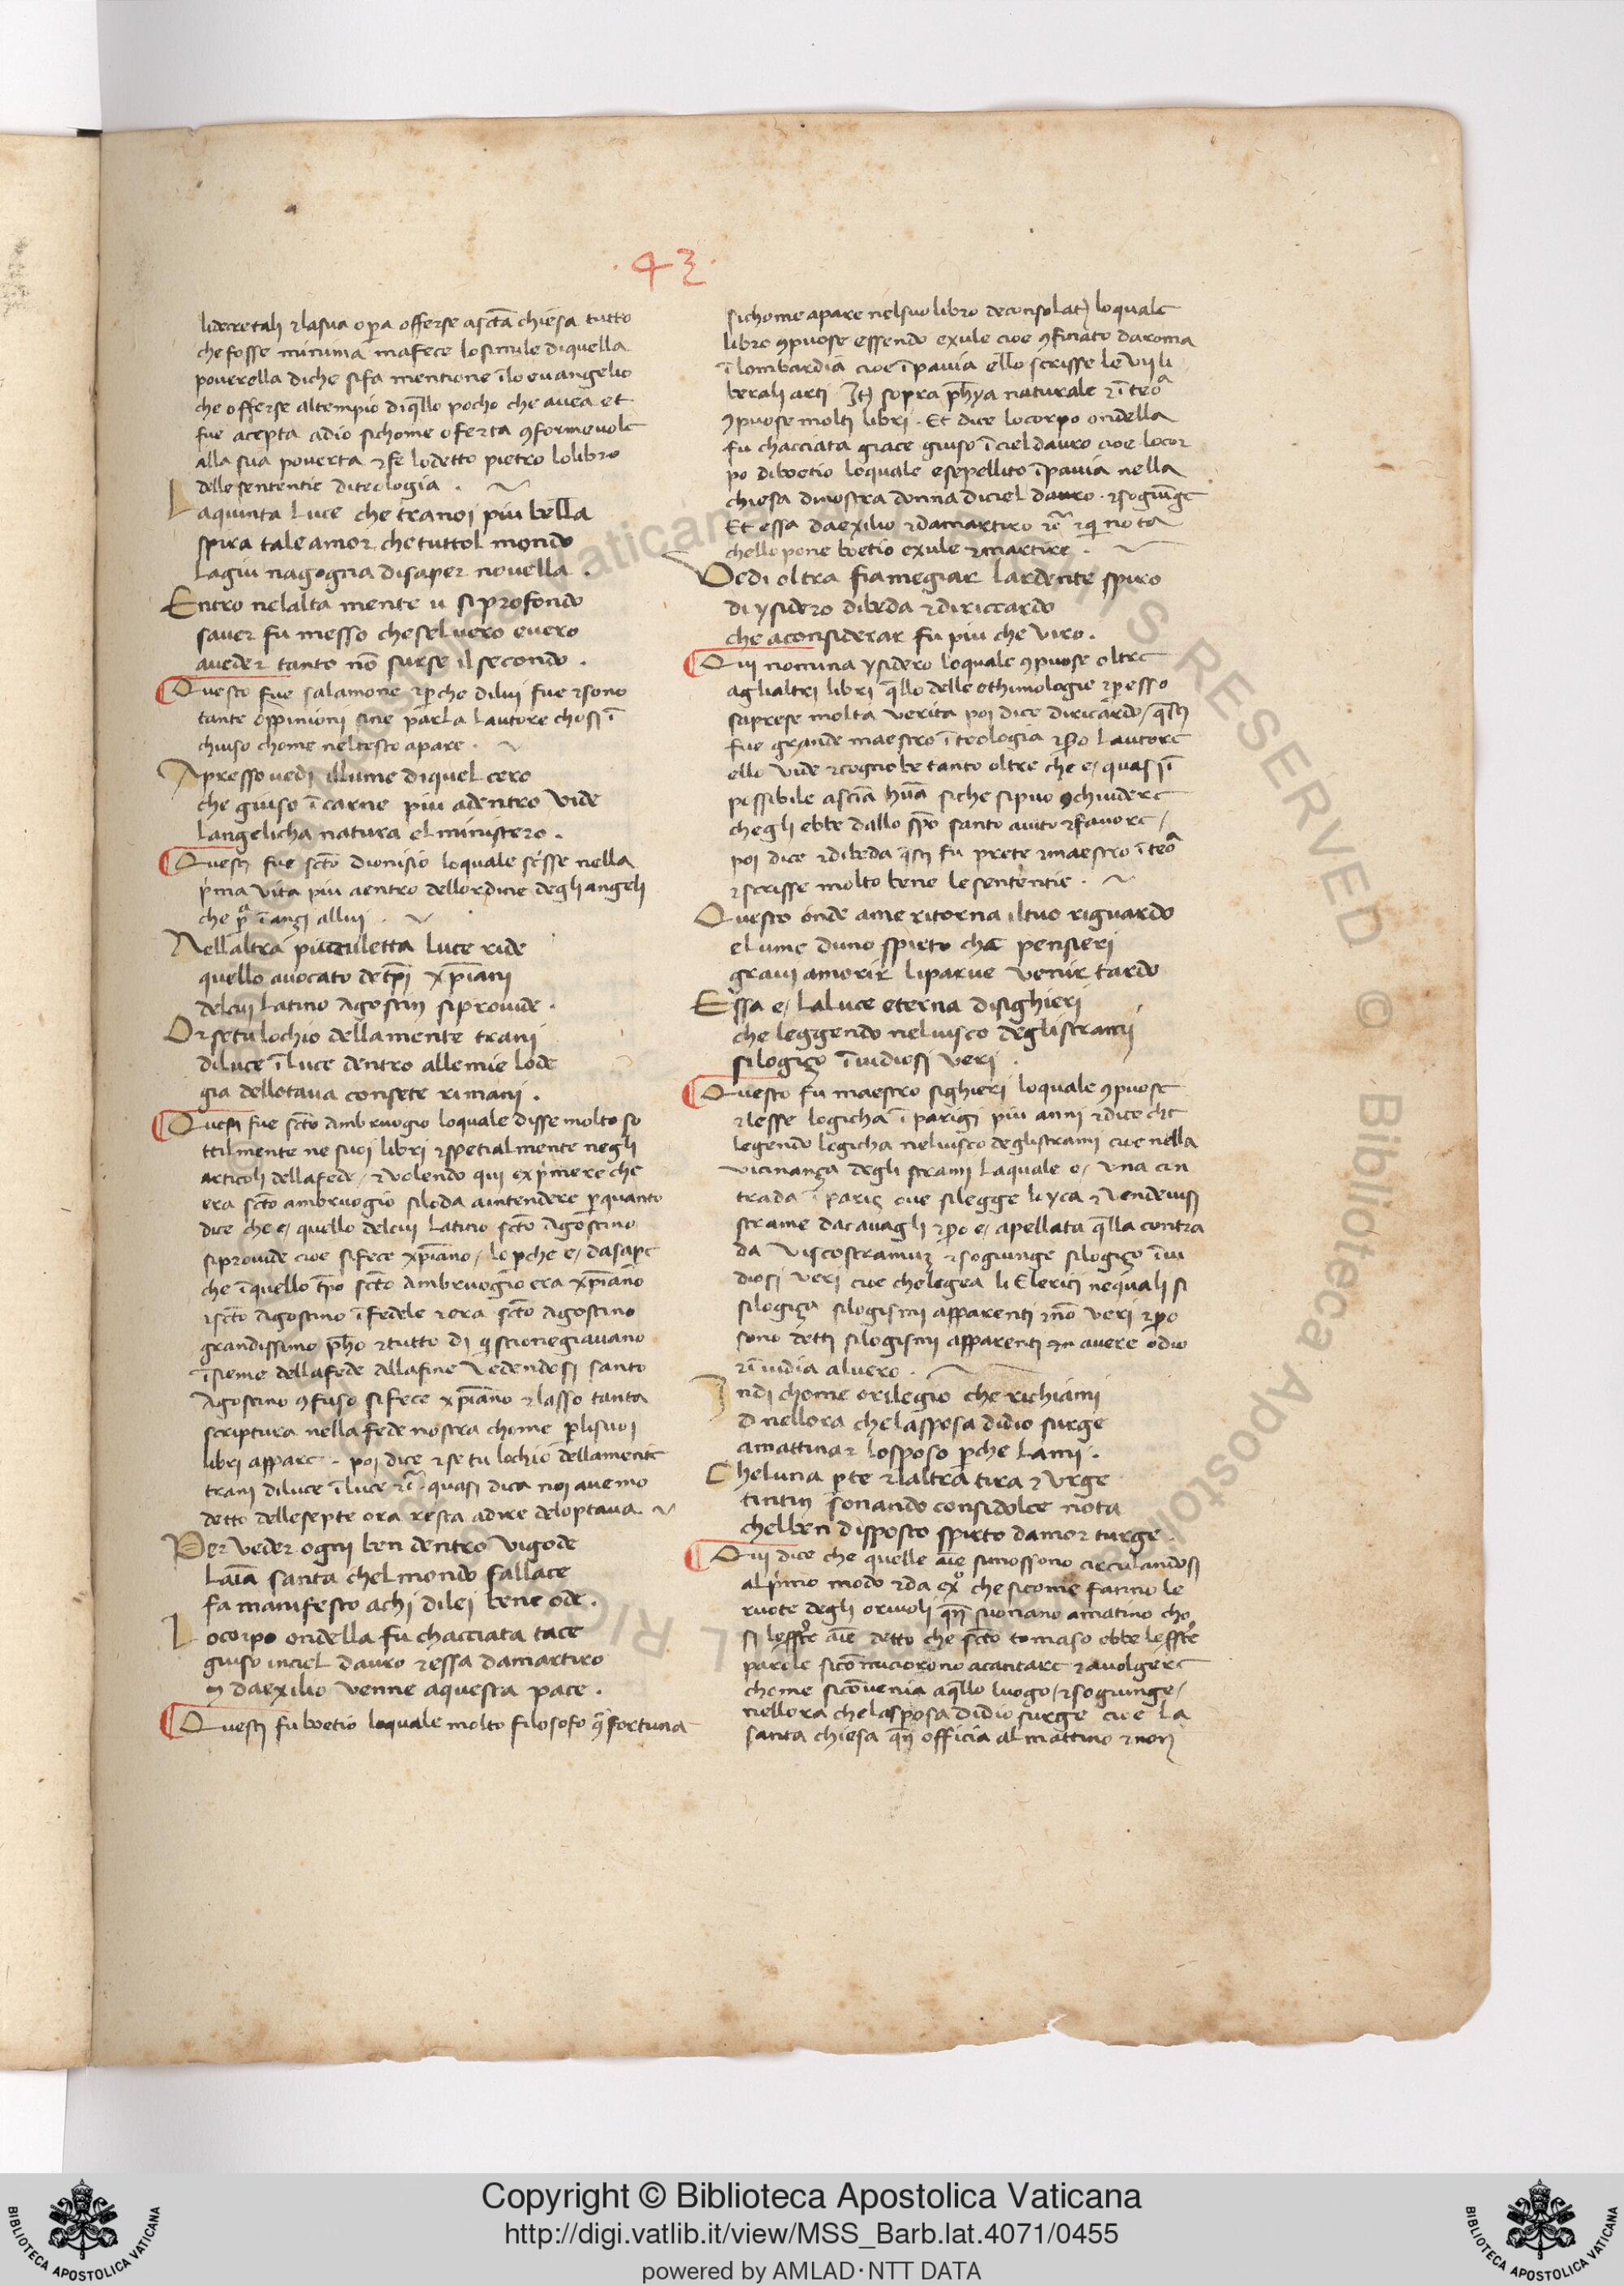 · 43 ·
lidecretali ⁊ lasua opa offerse a sctã chiesa tutto
che fosse minima ma fece lo simile di quella
poverella di che si fa mentione ĩ lo euangelio
che offerse al tempio di qllo pocho che avea et
fue acepta a dio sichome oferta ꝯformevole
alla sua poverta ⁊ fe lo detto pietro lo libro
delle sententie di teologia .
La quinta luce che tra noi piu bella
spira tale amor che tuttol mondo
la giu na gogna di saper novella .
Entro nel alta mente u si profondo
saver fu messo che sel vero e vero
a veder tanto nõ surse il secondo .
Questo fue salamone ⁊ pche di lui fue ⁊ sono
tante oppinioni sine parla lautore chosi ĩ
chiuso chome nel testo apare .
Apresso vedi illume di quel cero
che giuso ĩ carne piu a dentro vide
langelicha natura el ministero .
Questi fue scto dionisio lo quale scrisse nella
pma vita piu a entro dellordine degli angeli
che ĩ anzi allui .
Nell altra picciuletta luce ride
quello avocato de tpi xpiani
del cui latino agostin si provide .
Or se tu lochio della mente trani
di luce ĩ luce dentro alle mie lode
gia dellotava con sete rimani .
Questi fue scto ambruogio lo quale disse molto so
ttilmente ne suoi libri ⁊ spetialmente negli
articoli della fede / ⁊ volendo qui exprimere che
era scto ambruogio si loda a intendere p quanto
dice che e / quello del cui latino scto agostino
si provide cioe si fece xpiano / lo pche e / da sape
che ĩ quello tpo scto ambruogio era xpiano
⁊ scto agostino ĩ fedele ⁊ era scto agostino
grandissimo pho ⁊ tutto di qstionegiavano
ĩsieme della fede alla fine vedendosi santo
agostino ꝯfuso si fece xpiano ⁊ lasso tanta
scriptura nella fede nostra chome p li suoi
libri appare . poi dice ⁊ se tu lochio della mente
trani di luce ĩ luce ⁊c quasi dica noi avemo
detto delle septe ora resta a dire del optava
Per veder ogni ben dentro vi gode
laĩa santa chel mondo fallace
fa manifesto a chi di lei bene ode .
Lo corpo ondella fu chacciata iace
giuso in ciel dauro ⁊ essa da martiro
⁊ da exilio venne a questa pace .
Questi fu boetio lo quale molto filosofo fortuna
sichome apare nel suo libro de consolat lo quale
libro ꝯpuose essendo exule cioe ꝯfinato da roma
ĩ lombardia cioe ĩ pavia ello scrisse le vij li
berali arti Itȝ sopra phya naturale ⁊ ĩ teoa
ꝯpuose molti libri . Et dice lo corpo ondella
fu chacciata giace giuso ĩ ciel dauro cioe lo cor
po di boetio lo quale e sepellito ĩ pavia nella
chiesa di nostra donna di ciel dauro . ⁊ sogiũge
Et essa da exilio ⁊ da martiro ⁊c ⁊ qi nota
chello pone boetio exule ⁊ martire .
Vedi oltra fiamegiar lardente spiro
di ysidero di beda ⁊ di riccardo
che a considerar fu piu che viro .
Qui nomina ysidero lo quale ꝯpuose oltre
agli altri libri qllo delle ethimologie ⁊ p esso
si aprese molta verita poi dice di ricardo / qsti
fue grande maestro ĩ teologia ⁊ po lautore
ello vide ⁊ cognobe tanto oltre che e / quasi ĩ
possibile a scia hũa siche si puo ꝯchiudere
chegli ebbe dallo spo santo aiuto ⁊ favore /
poi dice ⁊ di beda qsti fu prete ⁊ maestro ĩ teoa
⁊ scrisse molto bene le sententie .
Questo onde a me ritorna il tuo riguardo
el ume duno spirto che pensieri
gravi a morir li parve venir tardo
Essa e / la luce eterna di sighieri
che leggendo nel visco degli strami
silogizo ĩvidiosi veri .
Questo fu maestro sighieri lo quale ꝯpuose
⁊ lesse logicha ĩ parigi piu anni ⁊ dice che
legendo logicha nel visco degli strami cioe nella
vicinanza degli strami la quale e / una con
trada ĩ parig ove si legge li yca ⁊ vendevisi
strame da cavagli ⁊ po e / apellata qlla contra
da viscostramiȝ ⁊ sogiunge silogizo ĩvi
diosi veri cioe che legea li Elerici ne quali si
silogiza silogismi apparenti ⁊ nõ veri ⁊ po
sono detti silogismi apparenti ⁊ in avere odio
⁊ ĩvidia al vero .
Indi chome orilegio che richiami
⁊ nellora che la sposa di dio surge
a mattinar lo sposo pche lami .
Che luna pte ⁊ laltra tira ⁊ urge
tintin sonando con si dolce nota
chelben disposto spirto damor turge .
Qui dice che quelle aie si mossono circulandosi
al pimo modo ⁊ da exo che sicome fanno le
ruote degli orivoli qñ suonano a matino cho
si leffte aie detto che scto tomaso ebbe leffte
parole si cõminciorono a cantare ⁊ a volgere
chome si cõvenia a qllo luogo / ⁊ sogiunge /
nellora che la sposa di dio surge cioe la
santa chiesa qñ officia al mattino ⁊ non
Copyright © Biblioteca Apostolica Vaticana
http://digi.vatlib.it/view/MSS_Barb.lat.4071/0455
powered by AMLAD·NTT DATA
BIBLIOTECA APOSTOLICA VATICANA
BIBLIOTECA APOSTOLICA VATICANA